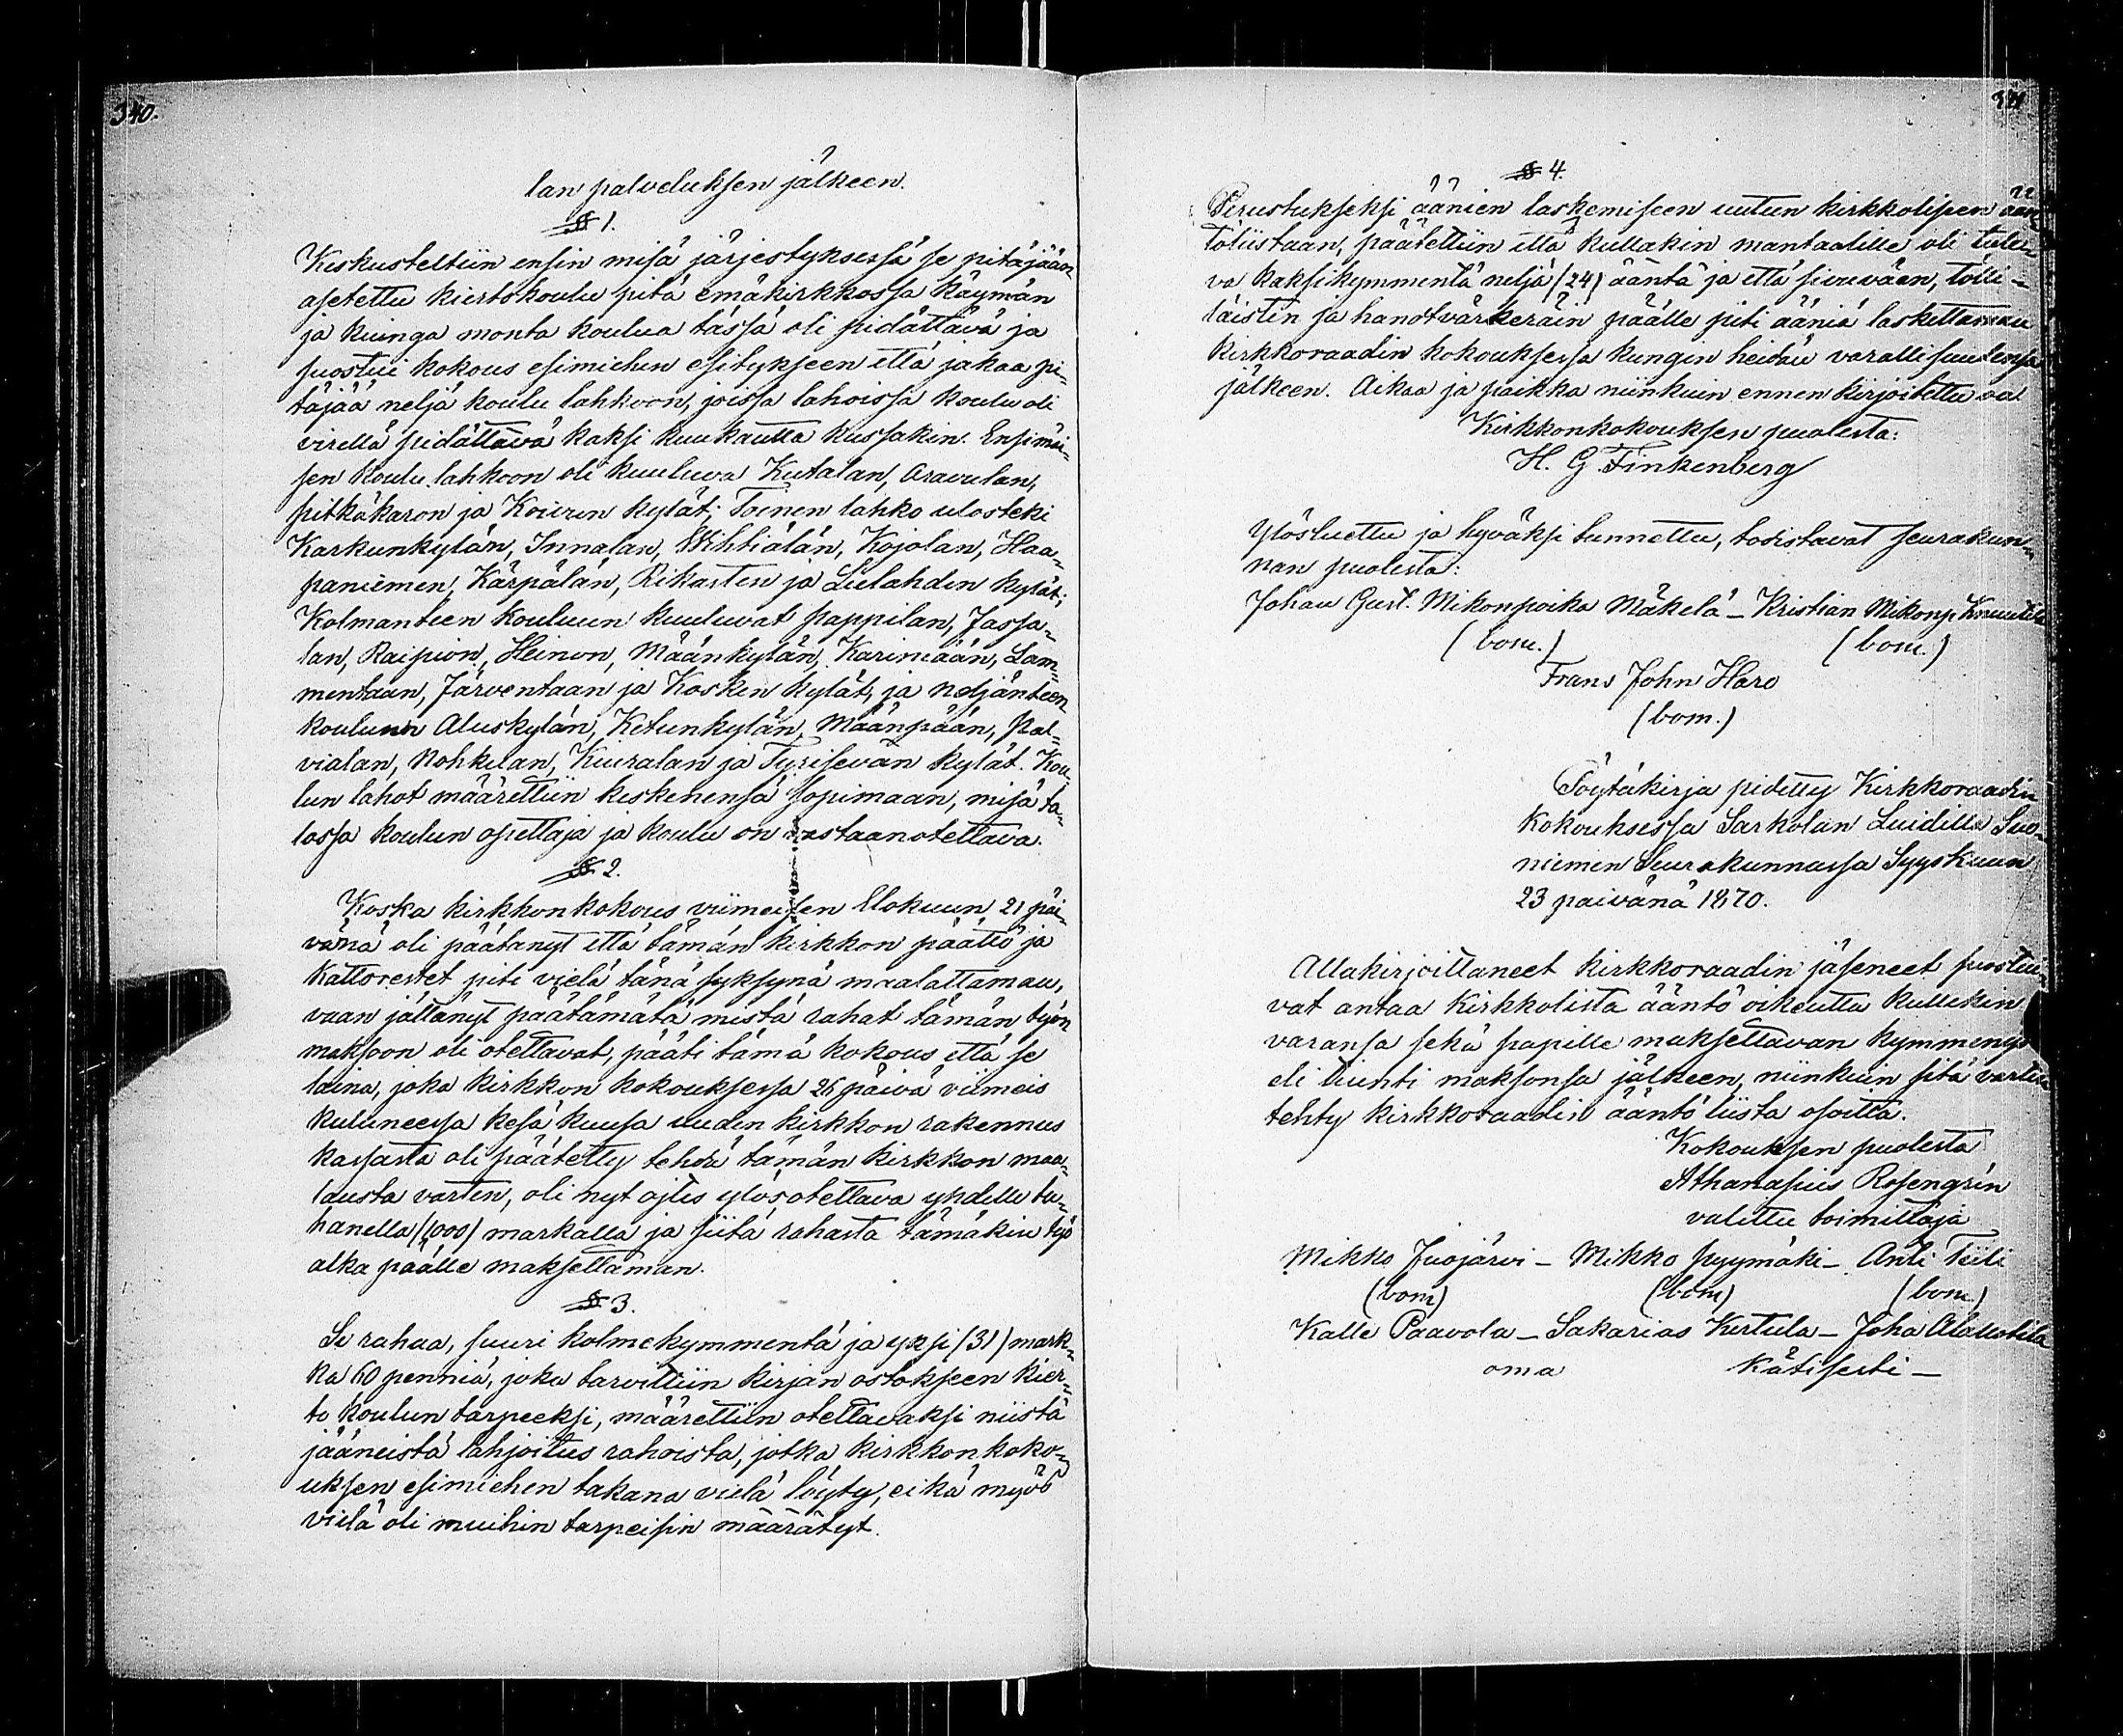 340.
lan palveluksen jälkeen.
§ 1.
Keskusteltiin ensin misä järjestyksessä se pitäjään
asetettu kiertokoulu pitä emäkirkkossa käymän
ja kuinga monta koulua tässä oli pidättävä ja
suostui kokous esimiehen esitykseen että jakaa pi-
täjää neljä koulu lahkoon, joissa lahoissa koulu oli
virellä pidättävä kaksi kuukautta kussakin. Ensimäi-
sen koulu lahkoon oli kuuluva Kutalan, Aravulan,
pitkäkaron ja Koivun kylät; Toinen lahko ulosteki
Karkunkylän, Innalan, Wihtiälän, Kojolan, Haa-
paniemen, Kärpälän, Rikasten ja Lielahden kylät;
Kolmanteen kouluun kuuluvat pappilan, Jassa-
lan, Raipion, Heinon, Määnkylän, Karimään, Lam-
mentaan, Järventaan ja Kosken kylät, ja neljänteen
kouluun Aluskylän, Ketunkylän, Määnpään, Pal-
vialan, Nohkilan, Kiuralan ja Tyrisevän kylät. Kou-
lun lahot määrettiin keskenensä sopimaan, misä ta-
lossa koulun opettaja ja koulu on vastaanotettava.
§ 2.
Koska kirkkonkokous viimeisen Elokuun 21 päi-
vänä oli päätänyt että tämän kirkkon päätiö ja
kattorestet piti vielä tänä syksynä maalattaman,
vaan jättänyt päätämätä mistä rahat tämän työn
maksoon oli otettavat, pääti tämä kokous että se
laina, joka kirkkon kokouksessa 26 päivä viimeis
kuluneessa kesä kuusa uuden kirkkon rakennus
kassasta oli päätetty tehdä tämän kirkkon maa-
lausta varten, oli nyt ojtis ylösotettava yhdellä tu-
hanella (1000) markalla ja siitä rahasta tämäkin työ
alka päälle maksettaman.
§ 3.
Se rahaa, suuri kolmekymmentä ja yxsi (31) mark-
ka 60 penniä, joka tarvittiin kirjan ostokseen kier-
to koulun tarpeeksi, määrettiin otettavaksi niistä
jääneistä lahjoitus rahoista, jotka kirkkonkoko-
uksen esimiehen takana vielä löyty, eikä myös
vielä oli muihin tarpeisin määrätyt.
§ 4.
Perustukseksi äänien laskemiseen uuteen kirkkolisen ään-
töliistaan, päätettiin että kullakin mantaalille oli tule-
va kaksikymmentä neljä (24) ääntä ja että sivuväen, tölli-
läisten ja hanotvärkeräin päälle piti ääniä laskettaman
kirkkoraadin kokouksessa kungin heidän varallisuutensa
jälkeen. Aika ja paikka niinkuin ennen kirjoitettu on
Kirkkonkokouksen puolesta:
H. G. Finkenberg
Ylösluettu ja hyväksi tunnettu, todistavat seurakun-
nan puolesta:
Johan Gust. Mikonpoika Mäkelä – Kristian Mikonp. Knuutila
(bom.) (bom.)
Frans John Haro
(bom.)
Pöytäkirja pidetty Kirkkoraadin
kokouksessa Sarkolan Luidilla Suo-
niemen Seurakunnassa Syyskuun
23 päivänä 1870.
Allakirjoittaneet kirkkoraadin jäseneet suostui-
vat antaa Kirkkolista ääntö oikeutta kullekin
varansa sekä papille maksettavan kymmenys
eli tiunti maksonsa jälkeen, niinkuin sitä varten
tehty kirkkoraadin ääntö liista osoitta.
Kokouksen puolesta
Athanasius Rosengrén
valittu toimittaja
Mikko Juojärvi – Mikko pyymäki – Anti Tiili
(bom) (bom) (bom)
Kalle Paavola – Sakarias Kertula – Joha Alallostila
oma kätisesti –